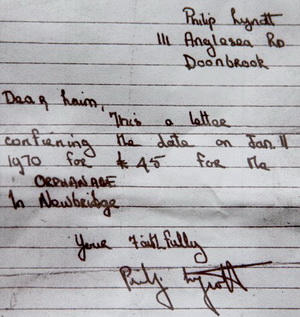 Philip Lynott
111 Anglesea Rd
Doonbrook
Dear Liam,
This a letter
confirming the date on Jan. 11
1970 for £45 for the
ORPHANAGE
In Newbridge
Your Faithfully
Philip Lynott